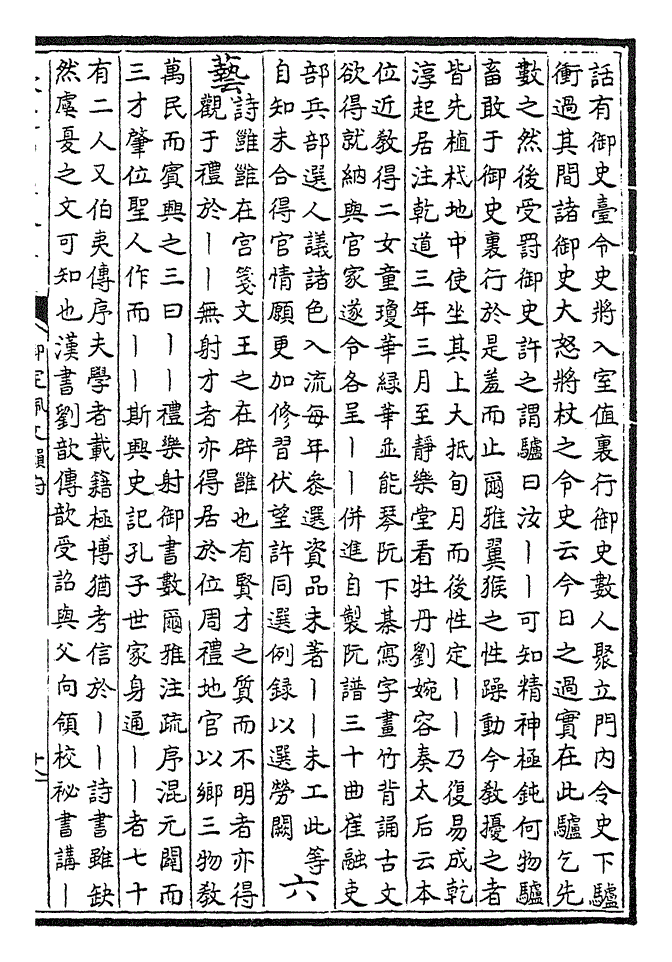 話有御史臺令史將入室值裏行御史數人聚立門內令史下驢
衝過其間諸御史大怒將杖之令史云今日之過實在此驢乞先
數之然後受罰御史許之謂驢曰汝丨丨可知精神極鈍何物驢
畜敢于御史裏行於是羞而止爾雅翼猴之性躁動今教擾之者
皆先植杙地中使坐其上大抵旬月而後性定丨丨乃復易成乾
淳起居注乾道三年三月至靜樂堂看牡丹劉婉容奏太后云本
位近教得二女童瓊華綠華並能琴阮下棊寫字畫竹背誦古文
欲得就納與官家遂令各呈丨丨併進自製阮譜三十曲崔融吏
部兵部選人議諸色入流每年叅選資品未著丨丨未工此等
自知未合得官情願更加修習伏望許同選例録以選勞闕
六
藝
詩雝雝在宮箋文王之在辟雝也有賢才之質而不明者亦得
觀于禮於丨丨無射才者亦得居於位周禮地官以鄉三物教
萬民而賓興之三曰丨丨禮樂射御書數爾雅注疏序混元闢而
三才肇位聖人作而丨丨斯興史記孔子世家身通丨丨者七十
有二人又伯夷傳序夫學者載籍極博猶考信於丨丨詩書雖缺
然虞夏之文可知也漢書劉歆傳歆受詔與父向領校祕書講丨